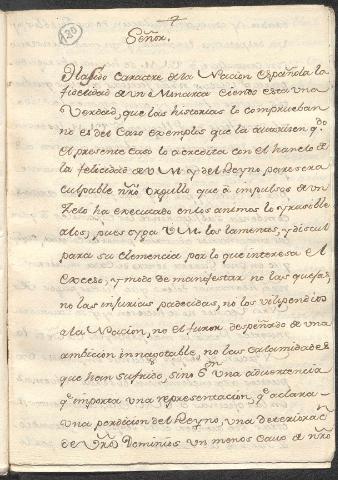 120
Señor.
Ha sido caracter de la Nacion Española la
fidelidad de un Monarca siendo esta una
Verdad, que las historias lo comprueban
no es del caso exemplos que la autorisen qdo
el presente caso lo acredita con el hanelo de
la felicidad de V.M. y del Reyno, paresera
culpable nro orgullo que à impulsos de un
Zelo ha executado en los animos lo
pues oyga V.M. los lamentos, y discul
para su clemencia por lo que interesa el
exceso, y modo de manifestar no las quejas,
no las injurias padecidas, no los vilipendios
a la Nacion, no el furor despeñado de una
ambicion no las calamidades
que han sufrido, sino una advertencia
qe importa una representacion, qe aclara
una perdicion del Reyno, una deterioracn
de Vros Dominios un menos cavo de nro